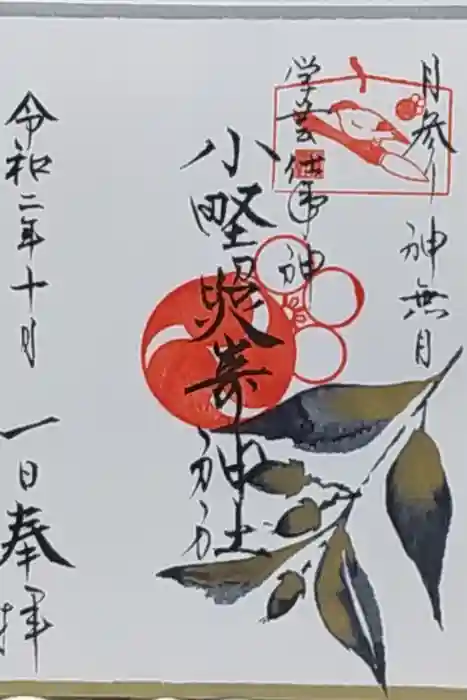 月参り 神無月
学芸仕事神
小野照嵜神社
令和二年十月 一日奉拝